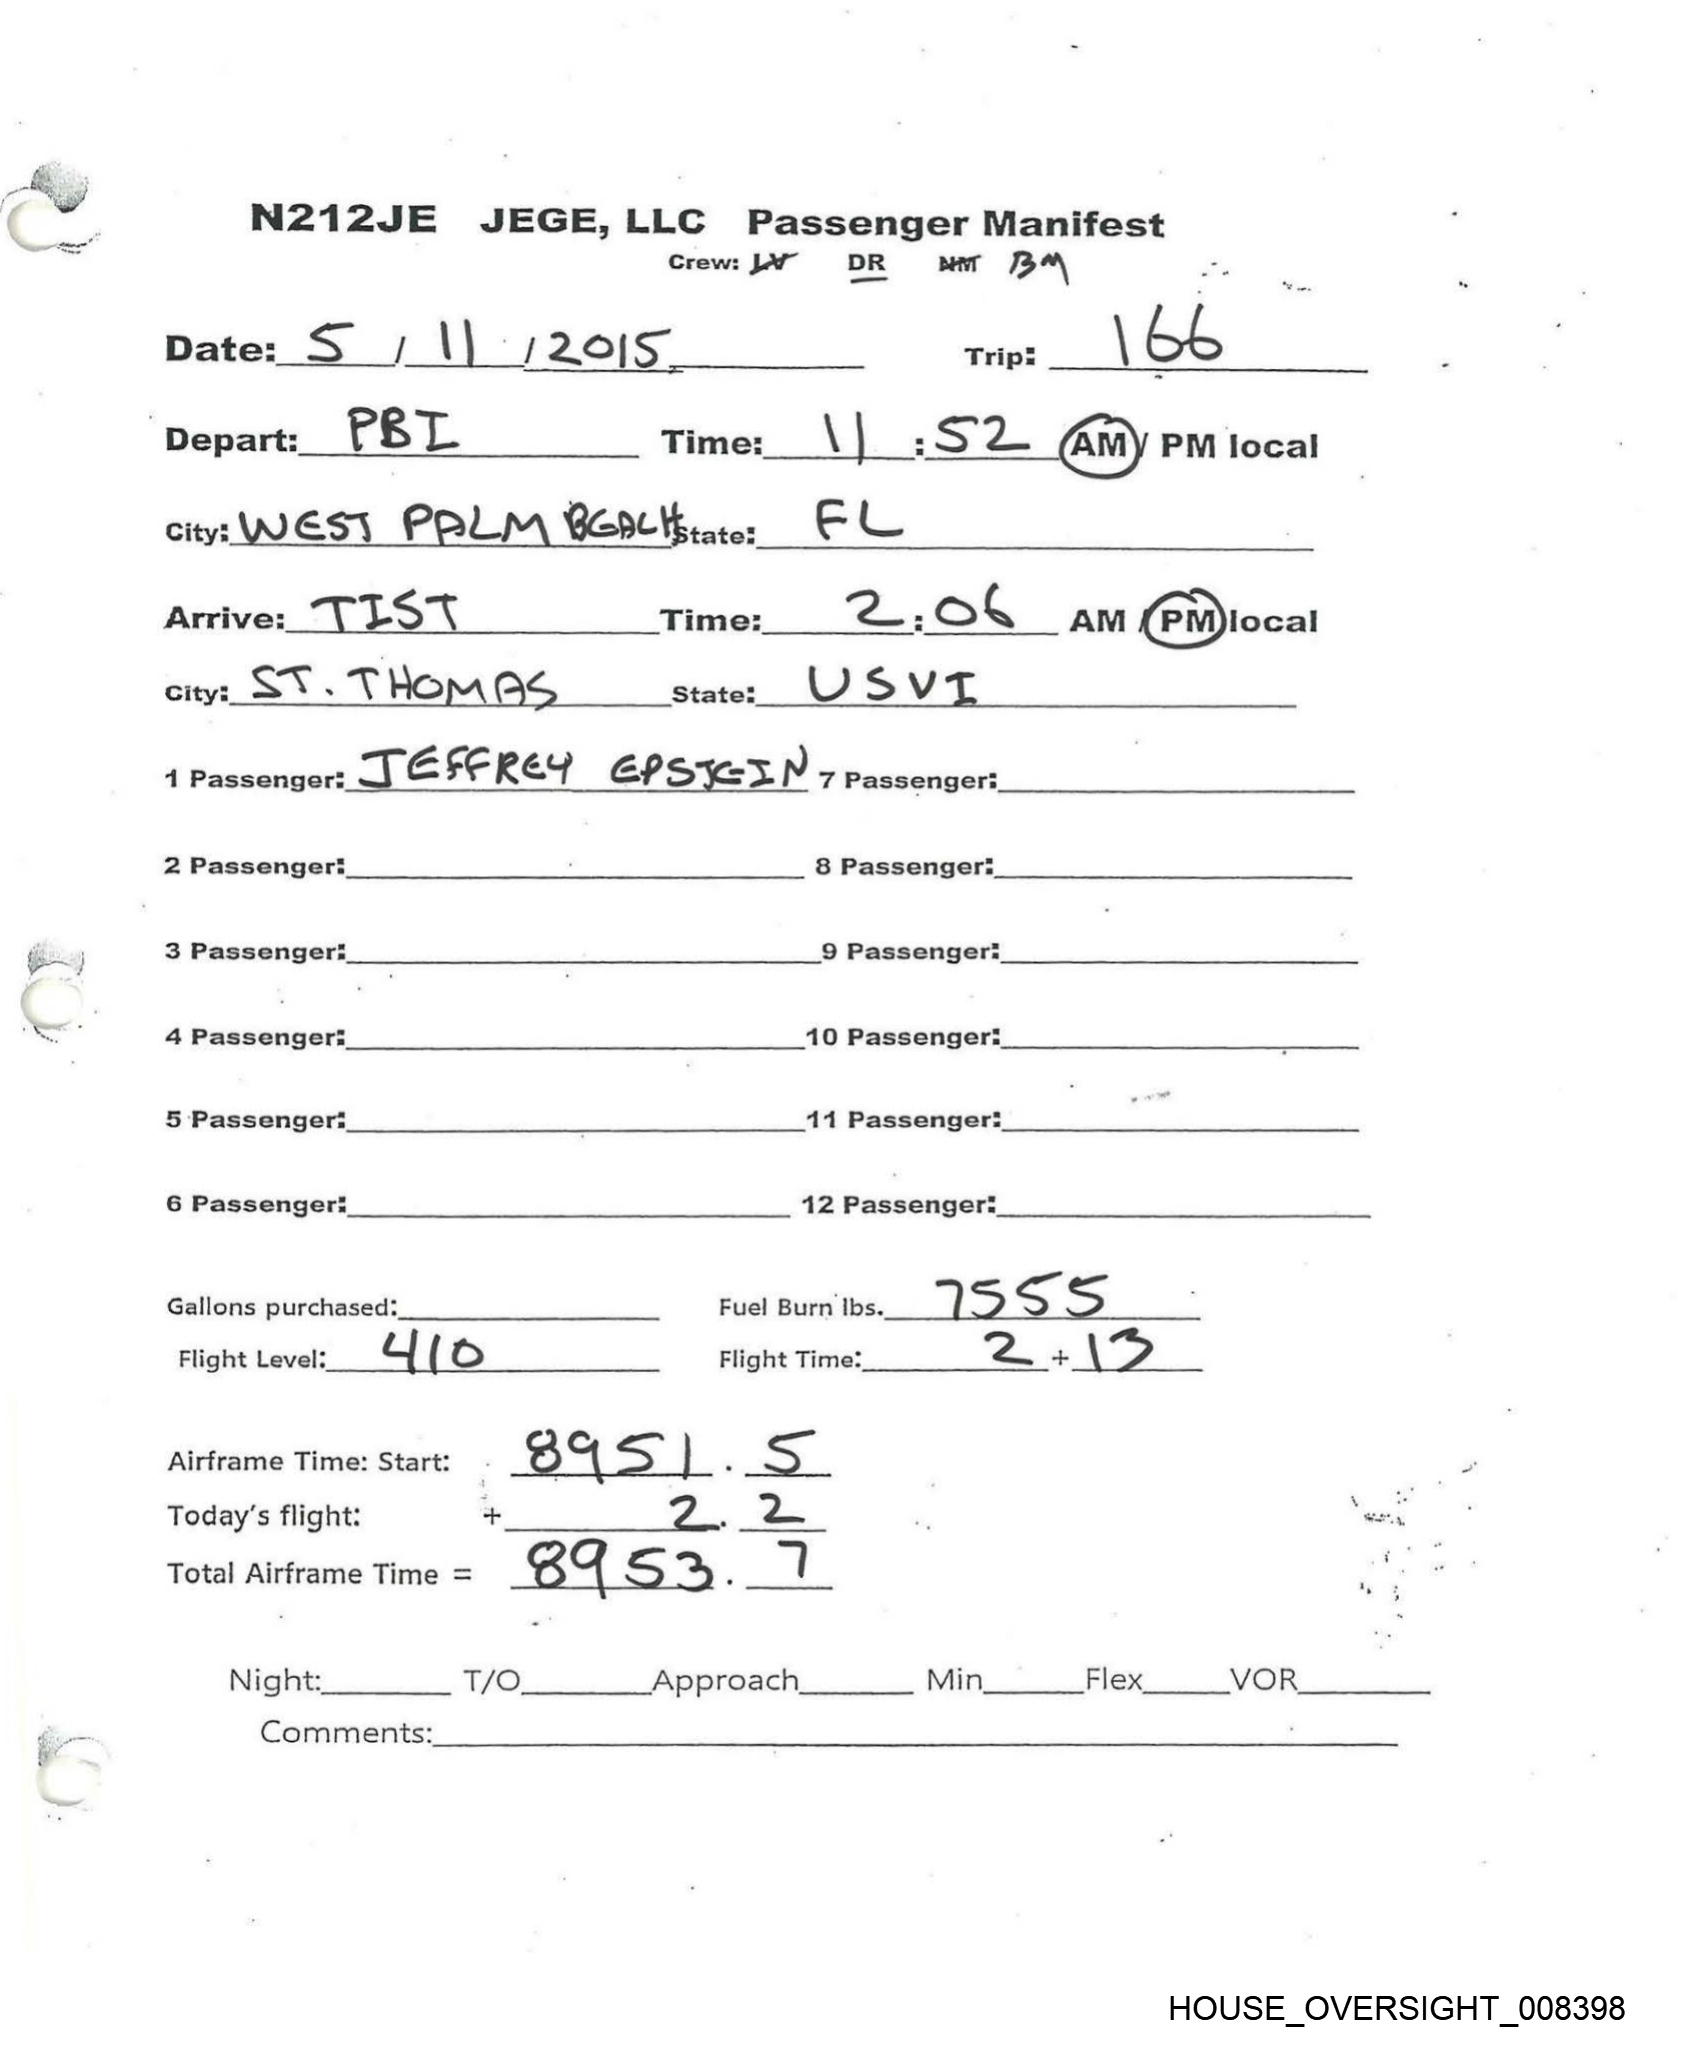 N212JE JEGE, LLC Passenger Manifest
Crew: LV DR NM BM
Date: 5 / 11 / 2015 Trip: 166
Depart: PBI Time: 11 : 52 AM / PM local
City: WEST PALM BEACH State: FL
Arrive: TIST Time: 2 : 06 AM / PM local
City: ST. THOMAS State: USVI
1 Passenger: JEFFREY EPSTEIN 7 Passenger:
2 Passenger: 8 Passenger:
3 Passenger: 9 Passenger:
4 Passenger: 10 Passenger:
5 Passenger: 11 Passenger:
6 Passenger: 12 Passenger:
Gallons purchased: Fuel Burn lbs. 7555
Flight Level: 410 Flight Time: 2 + 13
Airframe Time: Start: 8951 . 5
Today's flight: + 2 . 2
Total Airframe Time = 8953 . 7
Night: T/O Approach Min Flex VOR
Comments:
HOUSE_OVERSIGHT_008398